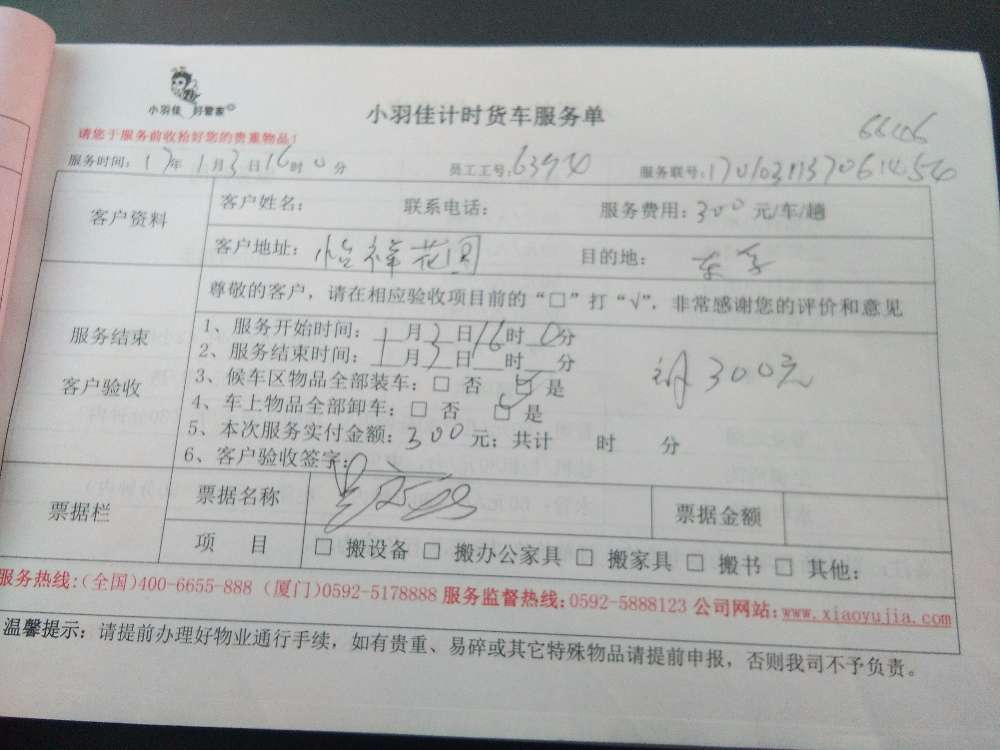 小羽佳 好管家
小羽佳计时货车服务单
请您于服务前收拾好您的贵重物品！
服务时间：17年1月3日16时0分 员工工号：63940 服务联号：
客户资料
客户姓名： 联系电话： 服务费用：300元/车/趟
客户地址：怡祥花园 目的地：
服务结束
客户验收
尊敬的客户，请在相应验收项目前的“□”打“√”，非常感谢您的评价和意见
1、服务开始时间：1月3日16时0分
2、服务结束时间：1月3日 时 分
3、候车区物品全部装车：□ 否 ☑ 是
4、车上物品全部卸车：□ 否 ☑ 是
5、本次服务实付金额：300元；共计 时 分
300元
6、客户验收签字：
票据栏
票据名称 票据金额
项 目 □ 搬设备 □ 搬办公家具 □ 搬家具 □ 搬书 □ 其他：
服务热线：(全国)400-6655-888 (厦门)0592-5178888 服务监督热线：0592-5888123 公司网站：www.xiaoyujia.com
温馨提示：请提前办理好物业通行手续，如有贵重、易碎或其它特殊物品请提前申报，否则我司不予负责。